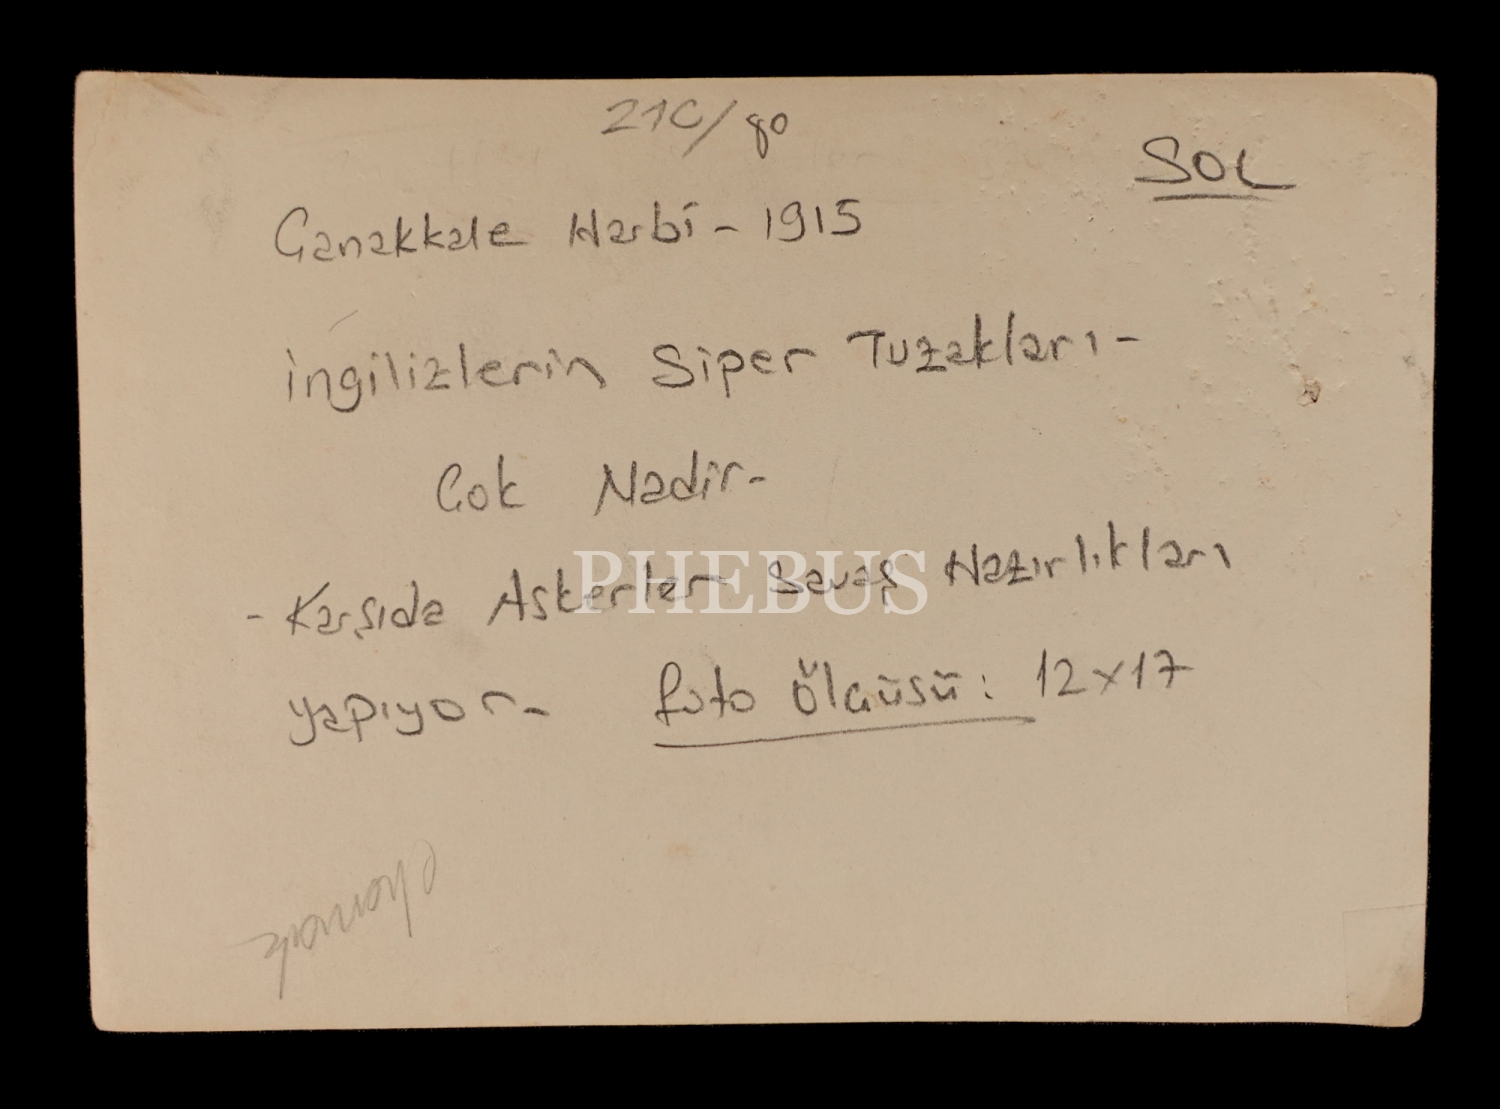 21C/90
SOL
Çanakkale Harbi - 1915
İngilizlerin Siper Tuzakları -
Çok Nadir -
- Karşıda Askerler Savaş Hazırlıkları
PHEBUS
yapıyor - foto Ölçüsü: 12x17